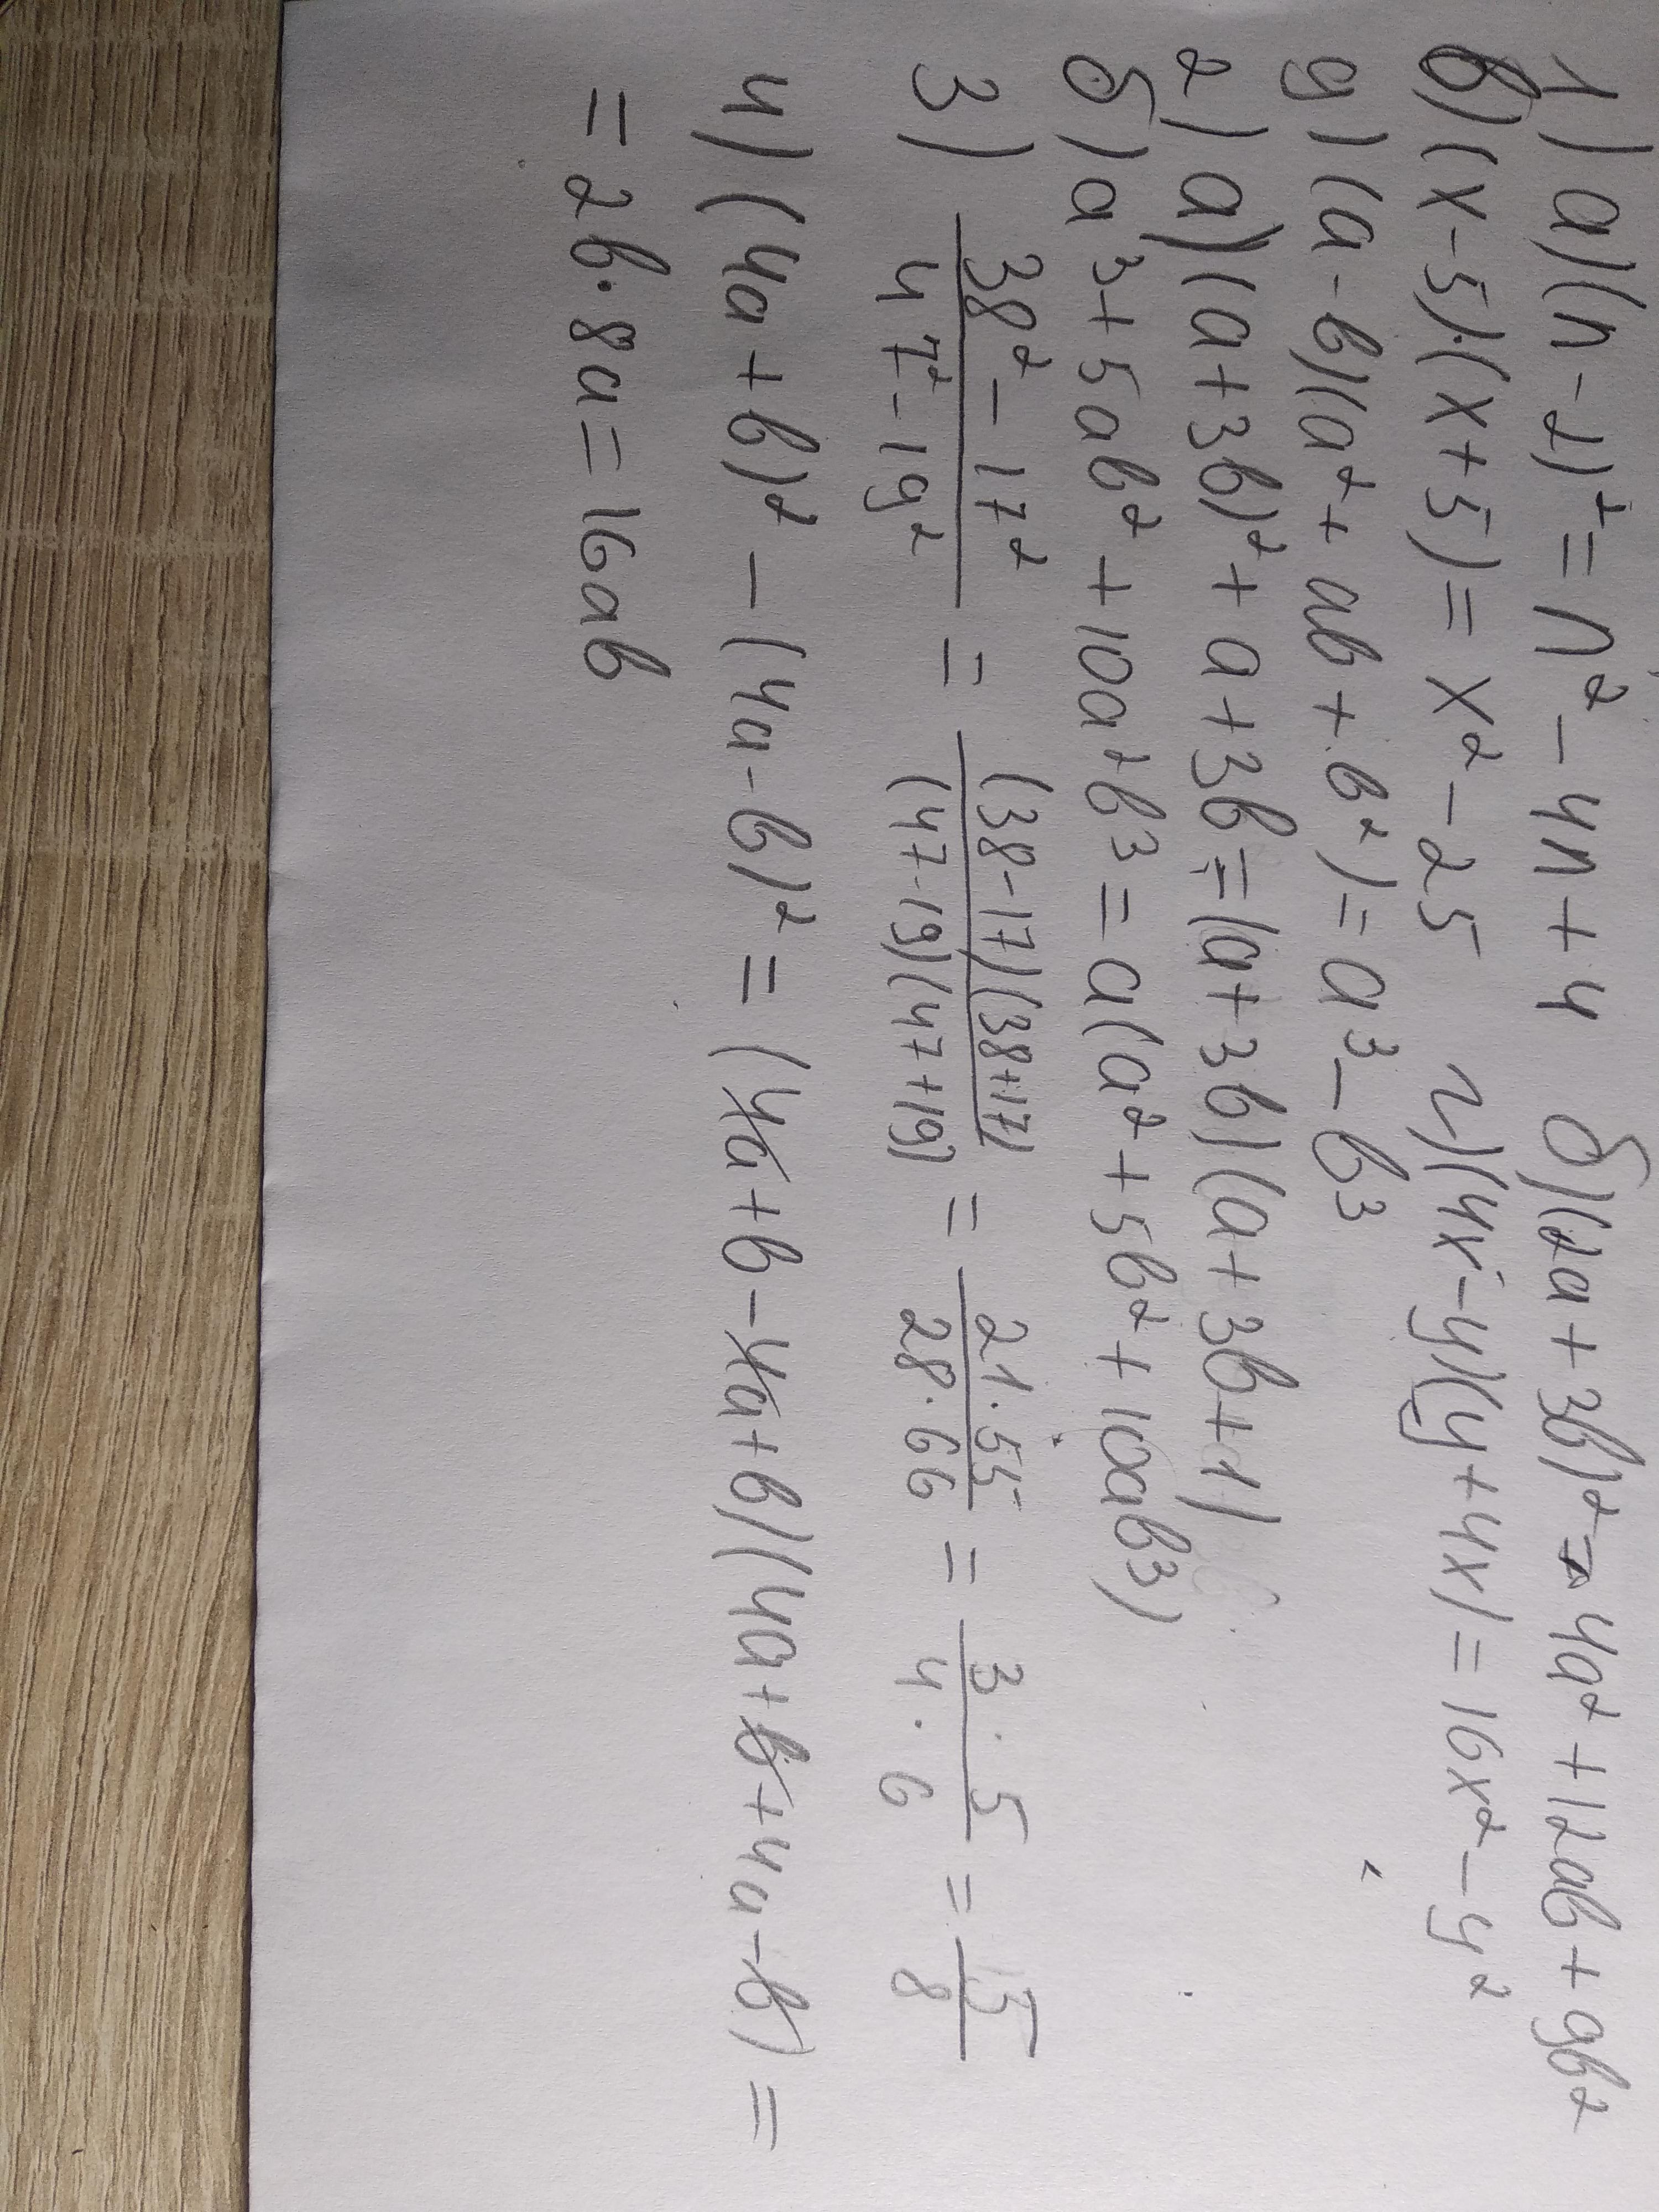 1) а) (n-2)² = n² - 4n + 4 б) (2a + 3b)² = 4a² + 12ab + 9b²
в) (x-5)·(x+5) = x² - 25 г) (4x - y)(y + 4x) = 16x² - y²
д) (a - b)(a² + ab + b²) = a³ - b³
2) а) (a+3b)² + a + 3b = (a+3b)(a+3b+1)
б) a³ + 5ab² + 10a²b³ = a(a² + 5b² + 10ab³)
3) (38² - 17²)/(47² - 19²) = ((38-17)(38+17))/((47-19)(47+19)) = (21·55)/(28·66) = (3·5)/(4·6) = 5/8
4) (4a + b)² - (4a - b)² = (4a + b - 4a + b)(4a + b + 4a - b) =
= 2b · 8a = 16ab